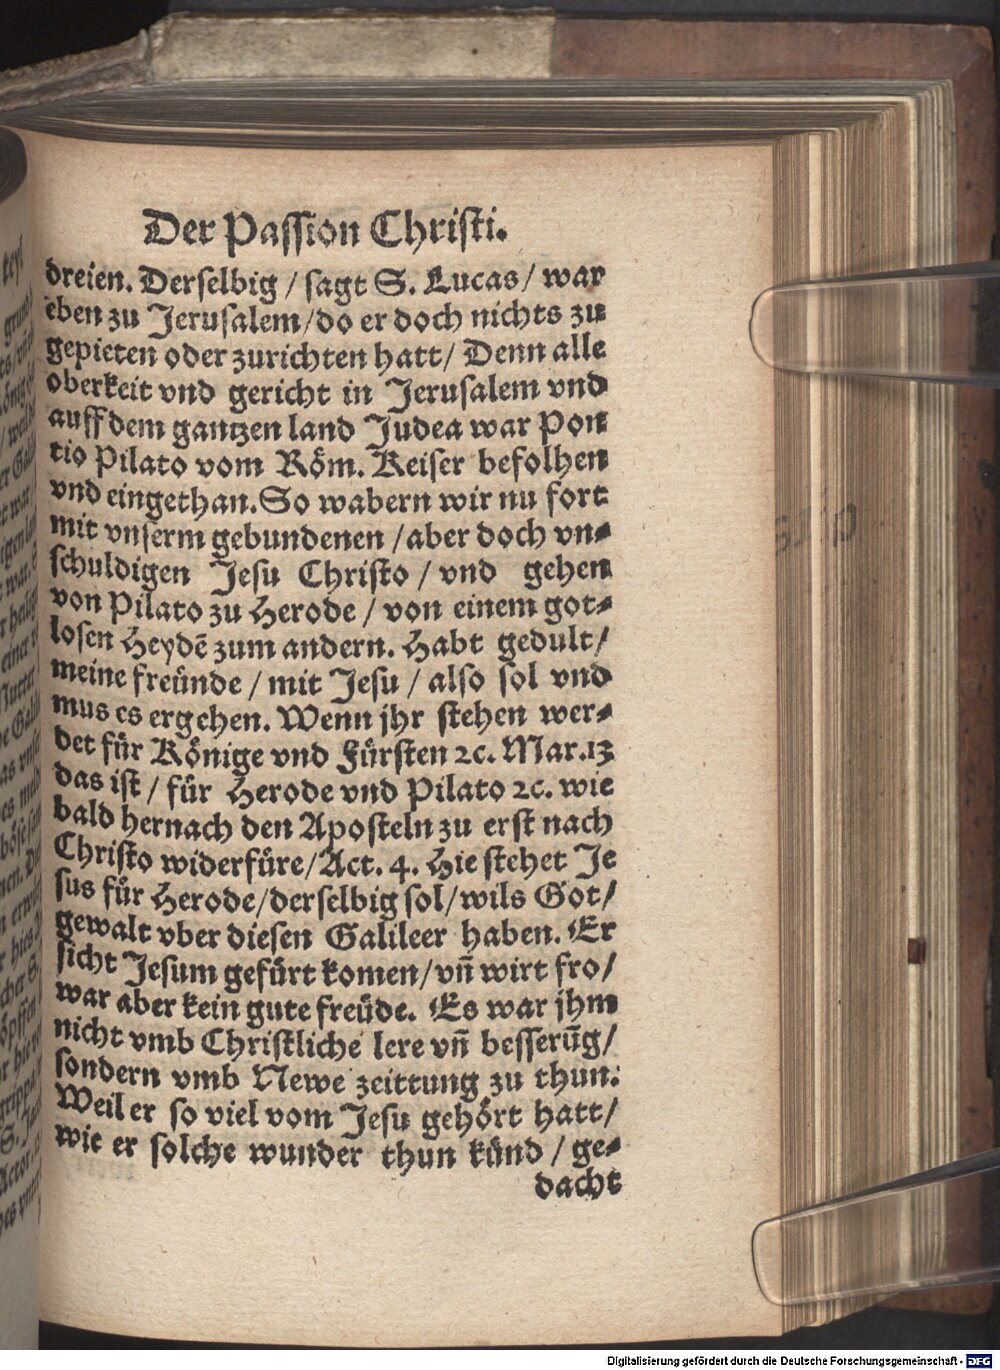 Der Passion Christi.
dreien. Derselbig / sagt S. Lucas / war
eben zu Jerusalem / do er doch nichts zu
gepieten oder zurichten hatt / Denn alle
oberkeit vnd gericht in Jerusalem vnd
auff dem gantzen land Judea war Pon
tio Pilato vom Röm. Keiser befolhen
vnd eingethan. So wabern wir nu fort
mit vnserm gebundenen / aber doch vn-
schuldigen Jesu Christo / vnd gehen
von Pilato zu Herode / von einem got-
losen Heydē zum andern. Habt gedult /
meine freünde / mit Jesu / also sol vnd
mus es ergehen. Wenn jhr stehen wer-
det für Könige vnd Fürsten ꝛc. Mar. 13
das ist / für Herode vnd Pilato ꝛc. wie
bald hernach den Aposteln zu erst nach
Christo widerfüre / Act. 4. Hie stehet Je
sus für Herode / derselbig sol / wils Got /
gewalt vber diesen Galileer haben. Er
sicht Jesum gefürt komen / vñ wirt fro /
war aber kein gute freüde. Es war jhm
nicht vmb Christliche lere vñ besserūg /
sondern vmb Newe zeittung zu thun:
Weil er so viel vom Jesu gehört hatt /
wie er solche wunder thun künd / ge-
dacht
Digitalisierung gefördert durch die Deutsche Forschungsgemeinschaft - DFG